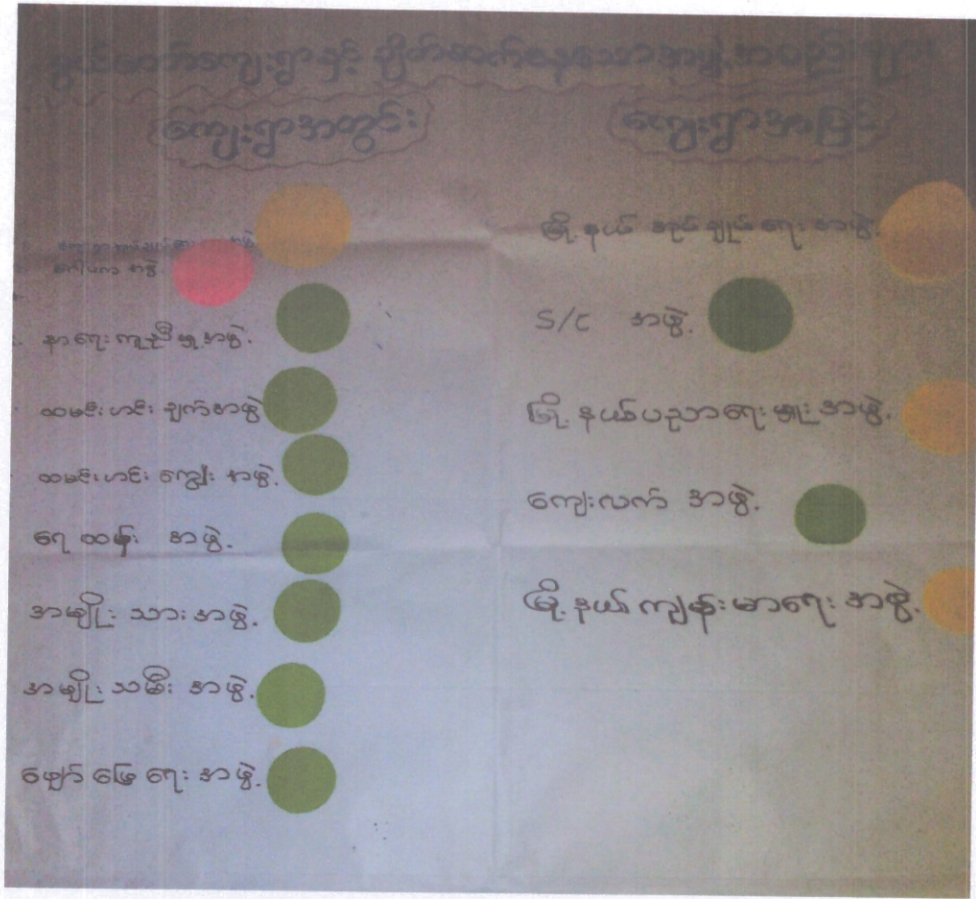 နွယ်မာက်ကျေးရွာနှင့် ချိတ်ဆက်နေသောအဖွဲ့အစည်းများ
ကျေးရွာအတွင်း
ကျေးရွာအပြင်
အဖွဲ့
အဖွဲ့
နာရေးကူညီမှုအဖွဲ့.
ထမင်းဟင်းချက်အဖွဲ့
ထမင်းဟင်းကျွေးအဖွဲ့.
ရေထမ်းအဖွဲ့.
အမျိုးသားအဖွဲ့.
အမျိုးသမီးအဖွဲ့.
ဖျော်ဖြေရေးအဖွဲ့.
မြို့နယ်အုပ်ချုပ်ရေးအဖွဲ့.
S/C အဖွဲ့.
မြို့နယ်ပညာရေးမှူးအဖွဲ့.
ကျေးလက်အဖွဲ့.
မြို့နယ်ကျန်းမာရေးအဖွဲ့.